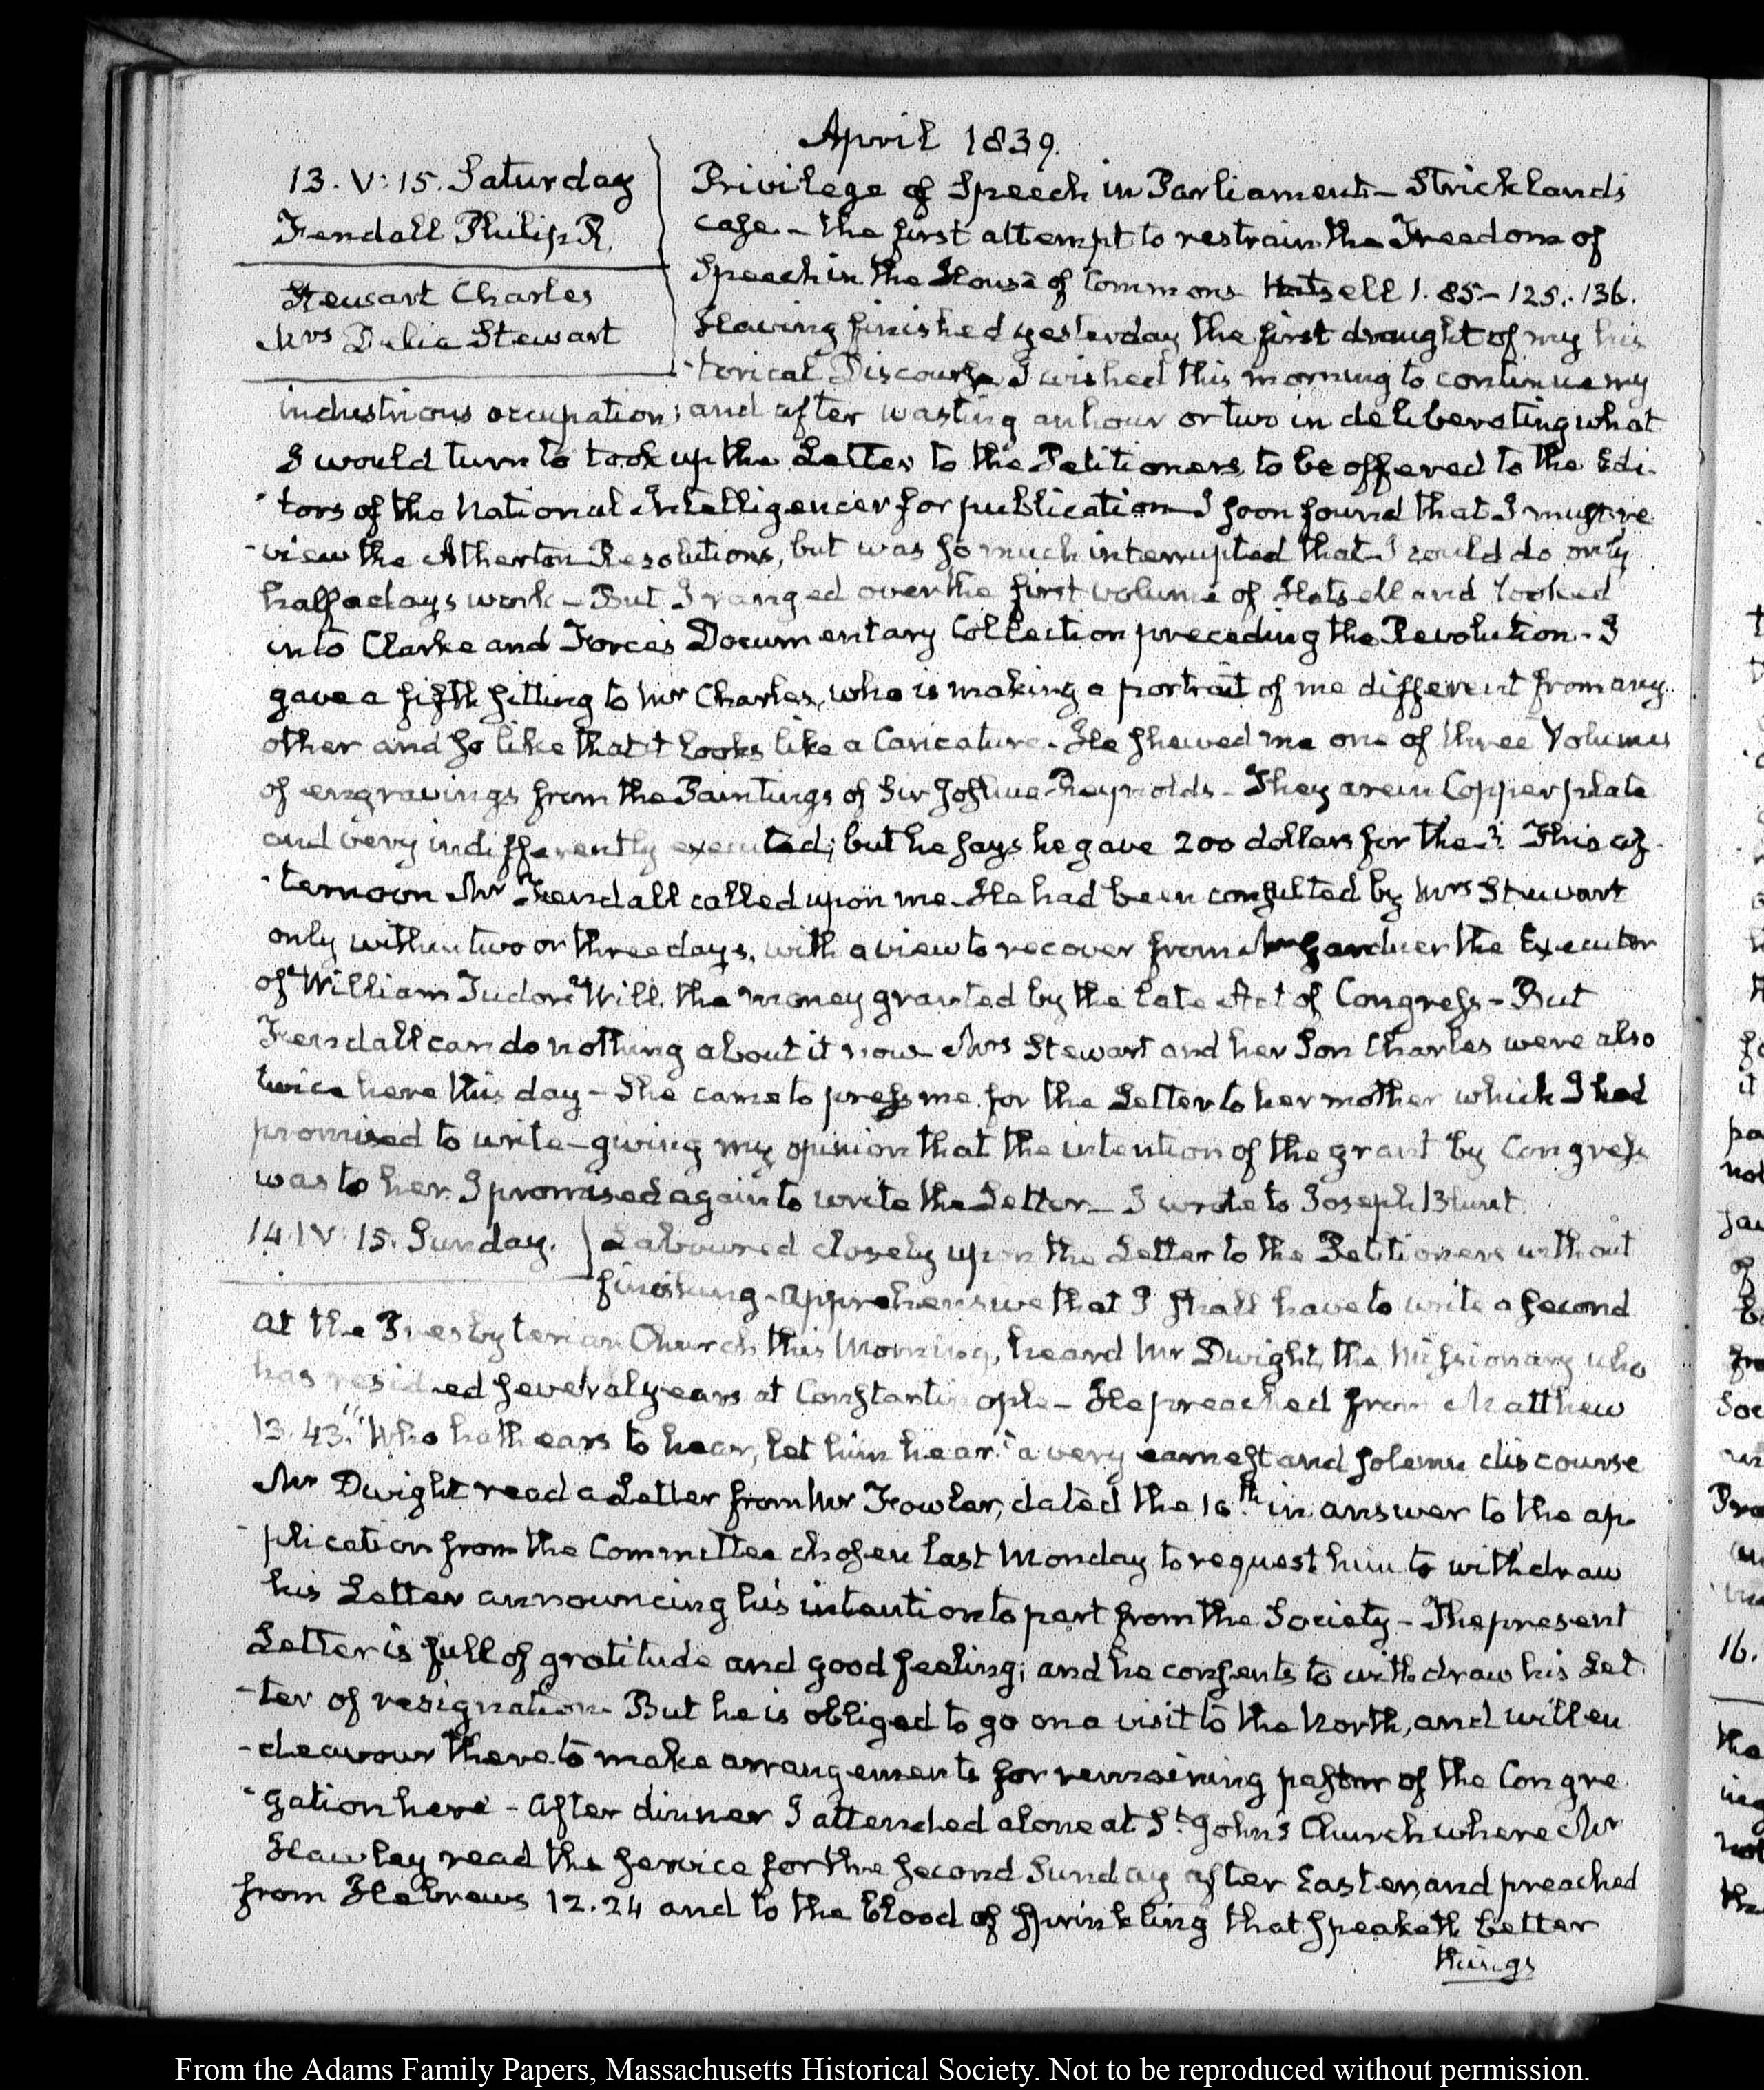 April 1839.
13. V: 15. Saturday
Fendall Philip R.
Steuart Charles
Mrs Delia Stewart
Privilege of Speech in Parliament – Stricklands
case – the first attempt to restrain the Freedom of
Speech in the House of Commons Hatsell 1. 85–125.. 136.
Having finished yesterday the first draught of my his
-torical Discourse, I wished this morning to continue my
industrious occupation; and after wasting an hour or two in deliberating what
I would turn to took up the Letter to the Petitioners, to be offered to the Edi-
-tors of the National Intelligencer for publication – I soon found that I must re
-view the Atherton Resolutions, but was so much interrupted that I could do only
half a days work – But I ranged over the first volume of Hatsell and looked
into Clarke and Force's Documentary Collection preceding the Revolution – I
gave a fifth sitting to Mr Charles, who is making a portrait of me different from any
other and so like that it looks like a Caricature. He shewed me one of three Volumes
of engravings from the Paintings of Sir Joshua Reynolds – They are in Copper plate
and very indifferently executed; but he says he gave 200 dollars for the 3. This af-
-ternoon Mr Fendall called upon me. He had been consulted by Mrs Stewart
only within two or three days, with a view to recover from Mr Gardner the Executor
of William Tudor's Will, the money granted by the late Act of Congress – But
Fendall can do nothing about it now – Mrs Stewart and her Son Charles were also
twice here this day – She came to press me for the Letter to her mother which I had
promised to write – giving my opinion that the intention of the grant by Congress
was to her. I promised again to write the Letter – I wrote to Joseph Blunt.
14. IV: 15. Sunday.
Laboured closely upon the Letter to the Petitioners without
finishing – Apprehensive that I shall have to write a second
at the Presbyterian Church this Morning, heard Mr Dwight, the Missionary who
has resided several years at Constantinople – He preached from Matthew
13. 43. "Who hath ears to hear, let him hear." a very earnest and solemn discourse
Mr Dwight read a Letter from Mr Fowler, dated the 10th in answer to the ap-
-plication from the Committee chosen last Monday to request him to withdraw
his Letter announcing his intention to part from the Society – The present
Letter is full of gratitude and good feeling; and he consents to withdraw his Let
-ter of resignation – But he is obliged to go on a visit to the North, and will en
-deavour there to make arrangements for remaining pastor of the Congre
-gation here – After dinner I attended alone at St. John's Church where Mr
Hawley read the service for the second Sunday after Easter, and preached
from Hebrews 12. 24 and to the blood of sprinkling that speaketh better
things
From the Adams Family Papers, Massachusetts Historical Society. Not to be reproduced without permission.